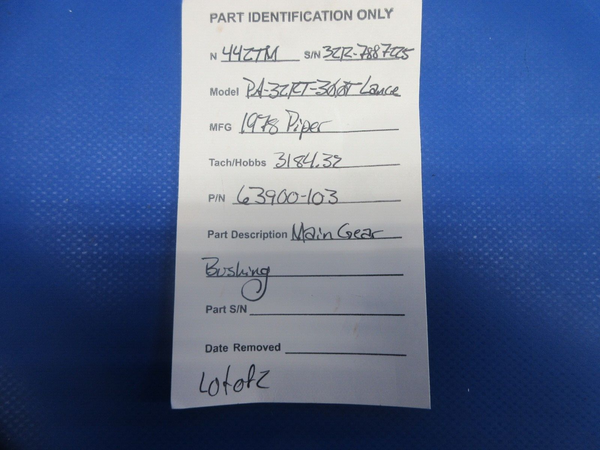 PART IDENTIFICATION ONLY
N 442TM S/N 32R-7887225
Model PA-32RT-300T Lance
MFG 1978 Piper
Tach/Hobbs 3184.32
P/N 63900-103
Part Description Main Gear
Bushing
Part S/N
Date Removed
Lot of 2